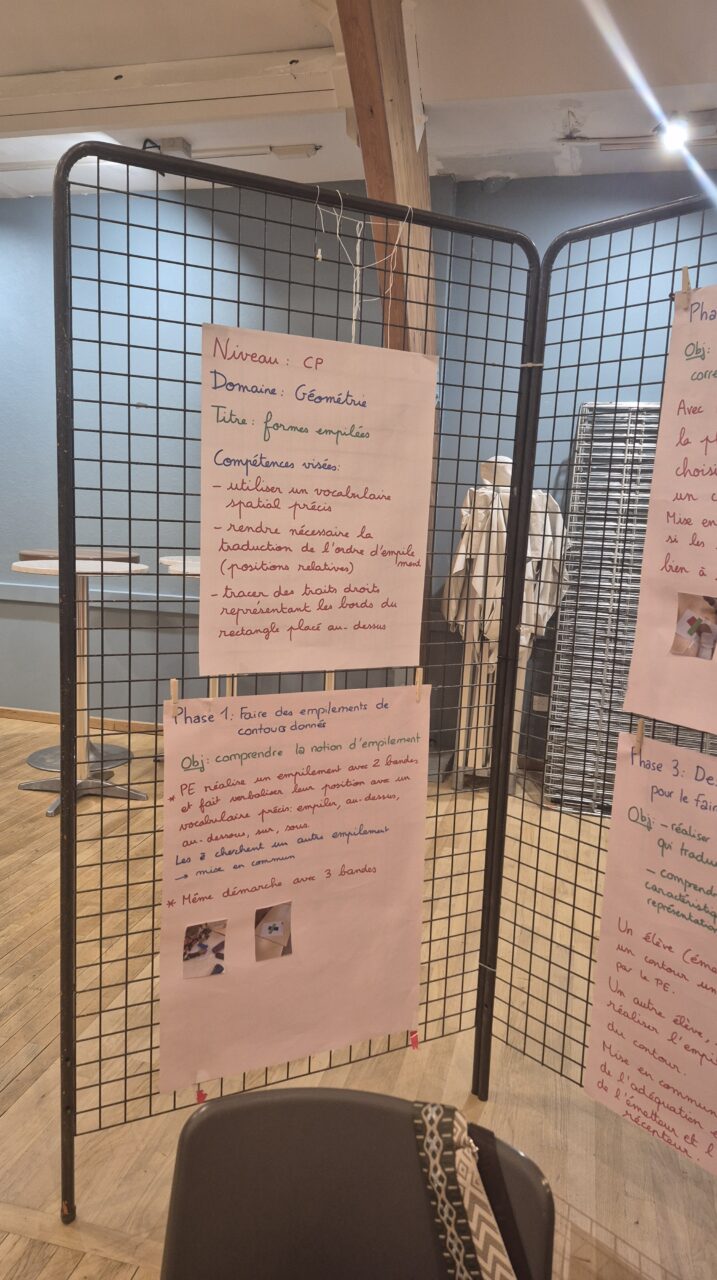 Niveau : CP
Domaine : Géométrie
Titre : formes empilées
Compétences visées:
- utiliser un vocabulaire
spatial précis
- rendre nécessaire la
traduction de l'ordre d'empile
ment
(positions relatives)
- tracer des traits droits
représentant les bords du
rectangle placé au-dessus
Phase 1: Faire des empilements de
contours donnés
Obj : comprendre la notion d'empilement
* PE réalise un empilement avec 2 bandes
et fait verbaliser leur position avec un
vocabulaire précis: empiler, au-dessus,
au-dessous, sur, sous.
Les é cherchent un autre empilement
→ mise en commun
* Même démarche avec 3 bandes
Pha
Obj:
corre
Avec
la p
choisi
un c
Mise en
si les
bien à
Phase 3: De
pour le fair
Obj: - réaliser
qui tradu
- comprend
caractéristiq
représentatio
Un élève (éme
un contour un
par le PE.
Un autre élève,
réaliser l'empi
du contour.
Mise en commun
de l'adéquation
de l'émetteur et l
récepteur.